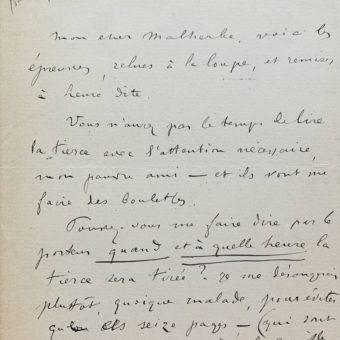 mon cher Malherbe, voici les
épreuves, relues à la loupe, et remises
à heure dite.
Vous n'aurez pas le temps de lire
la tierce avec l'attention nécessaire,
mon pauvre ami — et ils vont me
faire des boulettes.
Pouvez-vous me faire dire par le
porteur quand et à quelle heure la
tierce sera tirée ? Je me
plutôt, quoique malade, pour éviter
seize pages — (qui sont